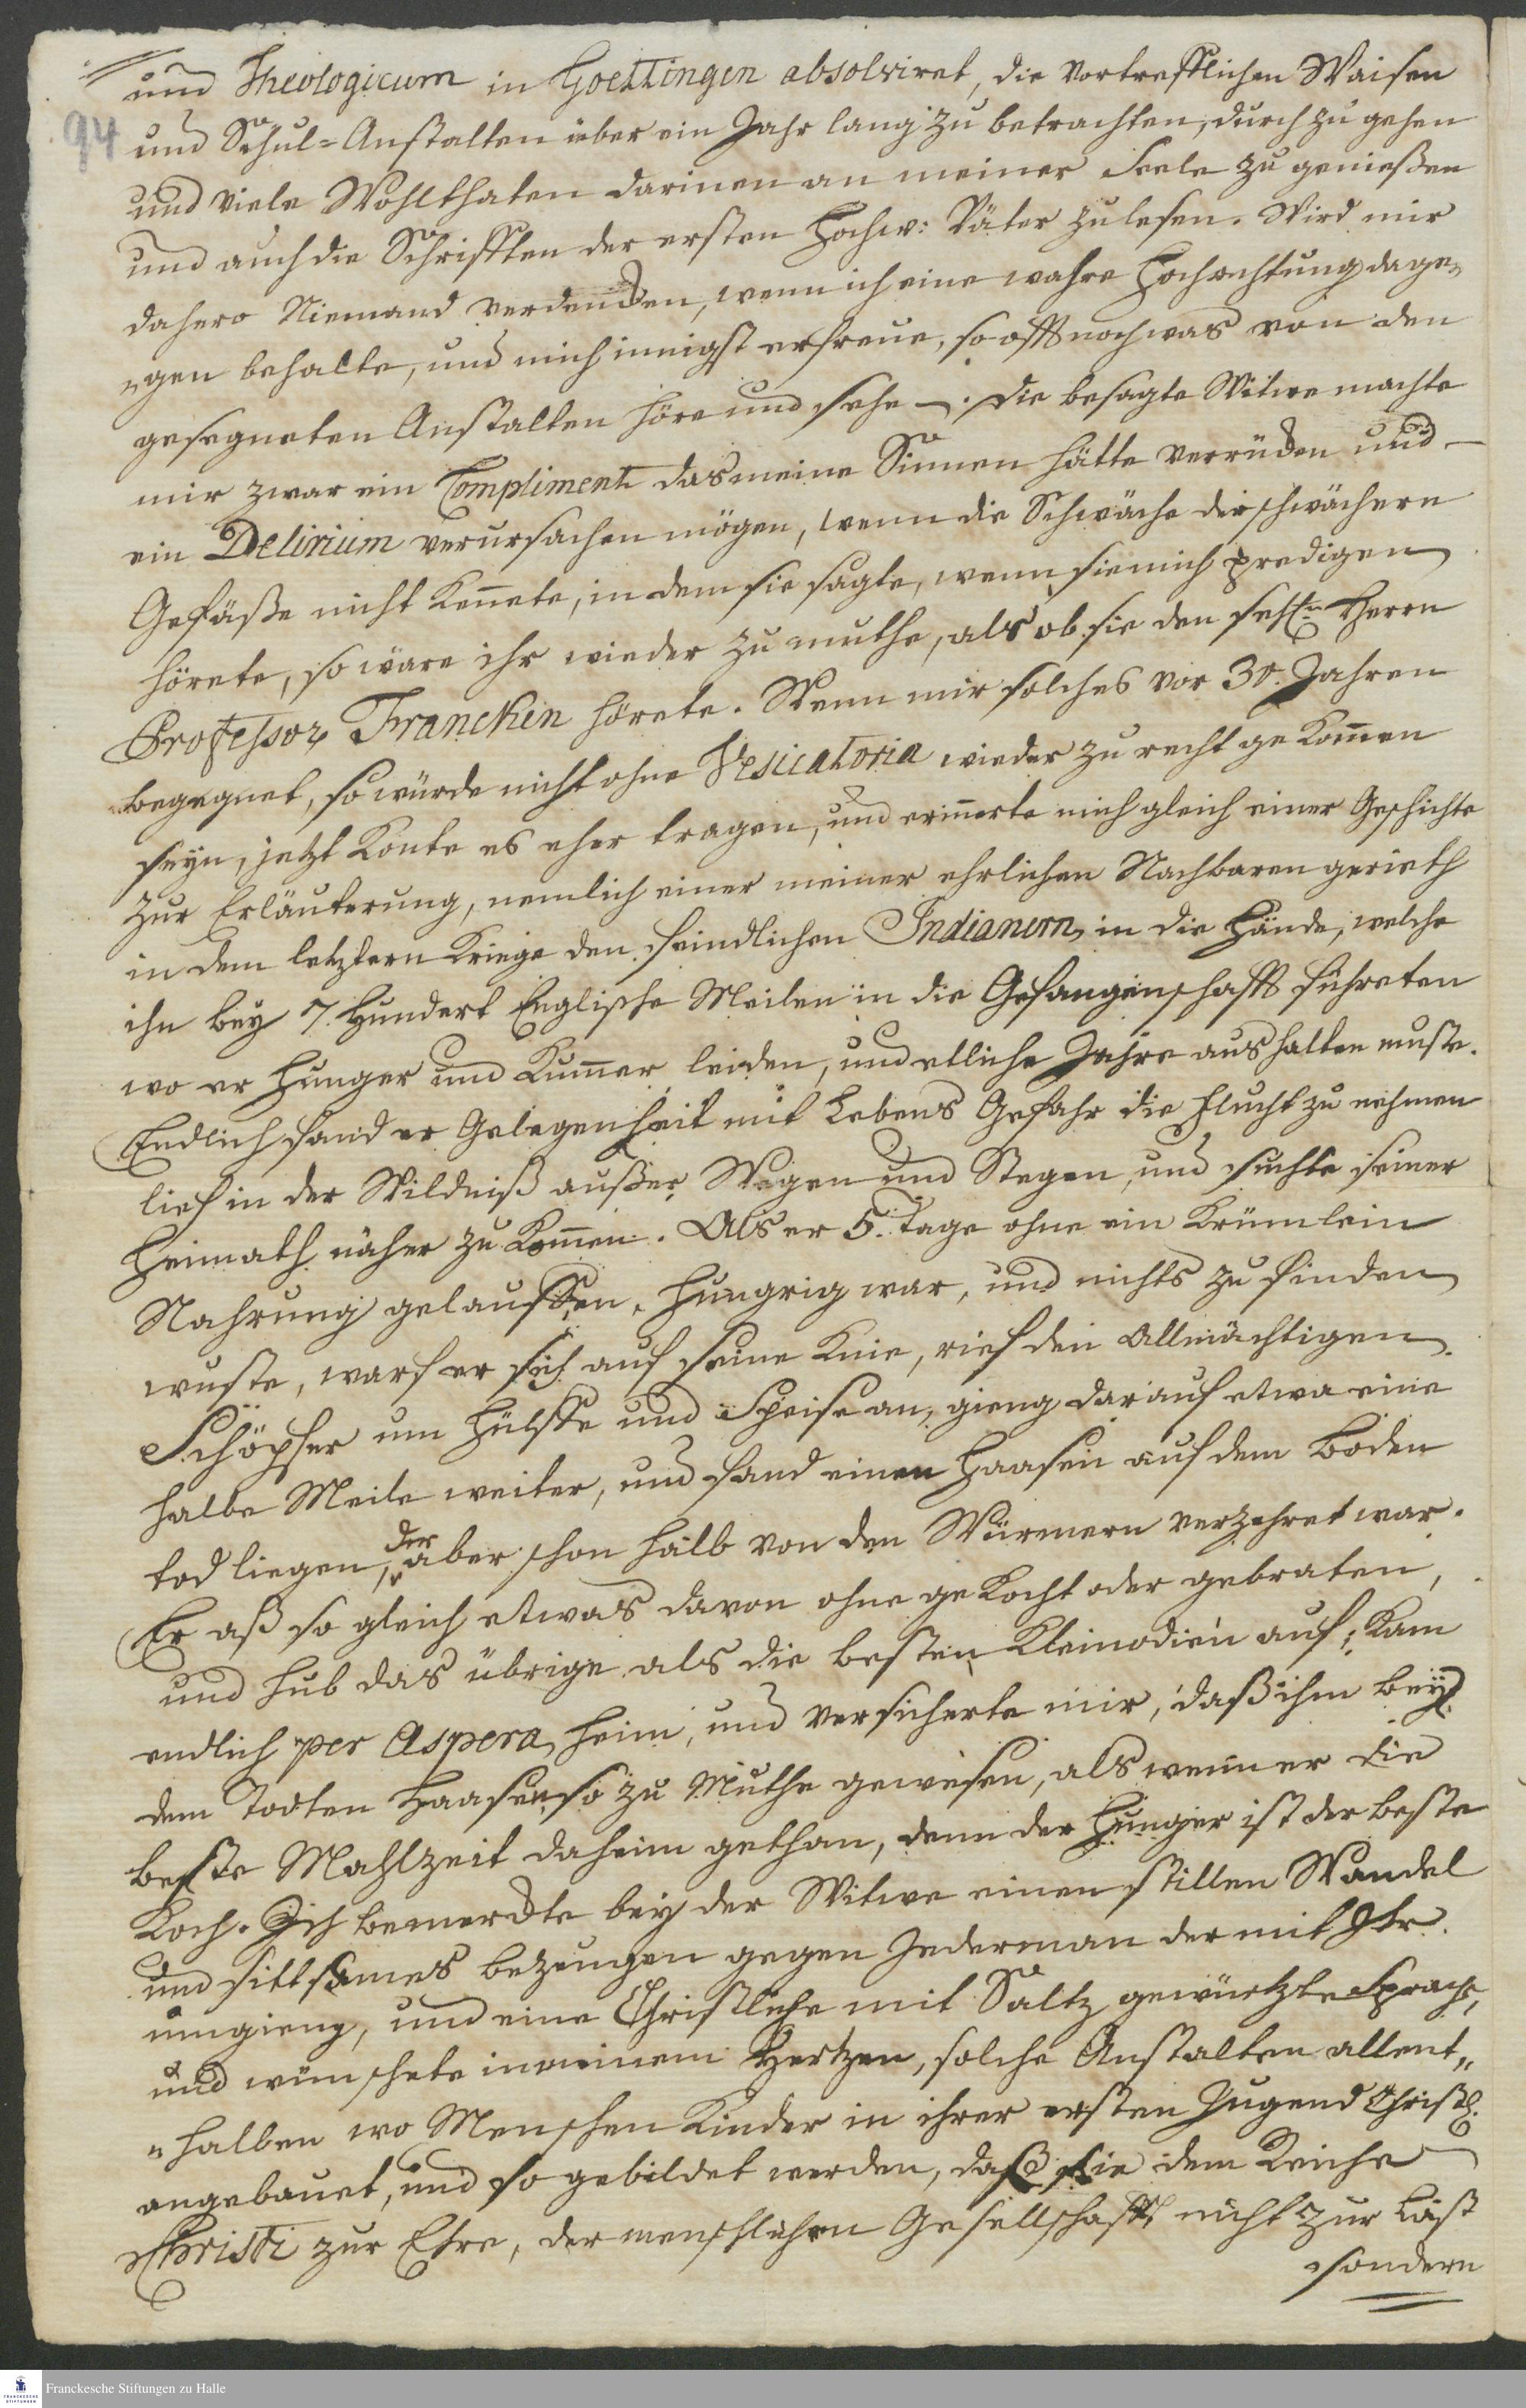 und Theologicum in Goettingen absolviret, die vortrefflichen Waisen
94
und Schul=Anstalten über ein Jahr lang zu betrachten, durch zu gehen
und viele Wohlthaten darinen an meiner Seele zu genießen
und auch die Schrifften der ersten Hochw: Väter zu lesen. Wird mir
dahero Niemand verdencken, wenn ich eine wahre Hochachtung dage„
„gen behalte, und mich innigst erfreue, so offt noch was von den
gesegneten Anstalten höre und sehe –. Die besagte Witwe machte
mir zwar ein Compliment das meine Sinnen hätte verrücken und –
ein Delirium verursachen mögen, wenn die Schwäche der schwächern
Gefäße nicht kennete, in dem sie sagte, wenn sie mich predigen
hörete, so wäre ihr wieder zu muthe, als ob sie den sehl: Herrn
Professor Francken hörete. Wenn mir solches vor 30. Jahren
begegnet, so würde nicht ohne Vesicatoria wieder zu recht gekommen
seyn, jetzt konte es eher tragen, und erinnerte mich gleich einer Geschichte
zur Erläuterung, nemlich einer meiner ehrlichen Nachbaren gerieth
in dem letztern Kriege den feindlichen Indianern in die Hände, welche
ihn bey 7. Hundert Englische Meilen in die Gefangenschafft führeten
wo er Hunger und Kummer leiden, und etliche Jahre aushalten muste.
Endlich fand er Gelegenheit mit Lebens Gefahr die Flucht zu nehmen
lief in der Wildniß außer Wegen und Stegen, und suchte seiner
Heimath näher zu kommen. Als er 5. Tage ohne ein Krümlein
Nahrung gelauffen, hungrig war, und nichts zu finden
wuste, warf er sich auf seine Knie, rief den Allmächtigen
Schöpfer um Hülffe und Speise an, gieng darauf etwa eine
halbe Meile weiter, und fand einen Haasen auf dem Boden
tod liegen, der aber schon halb von den Würmern verzehret war.
Er aß so gleich etwas davon ohne gekocht oder gebraten,
und hub das übrige als die besten Kleinodien auf; kam
endlich per Aspera heim, und versicherte mir, daß ihm bey
dem Todten Haasen so zu Muthe gewesen, als wenn er die
beste Mahlzeit daheim gethan, denn der Hunger ist der beste
Koch. Ich bemerckte bey der Witwe einen stillen Wandel
und sittsames bezeugen gegen Jederman der mit Ihr
umgieng, und eine Christliche mit Saltz gewürtzte Sprache,
und wünschete in meinem Hertzen, solche Anstalten allent„
„halben wo Menschen Kinder in ihrer ersten Jugend Christl.
angebauet, und so gebildet werden, daß sie dem Reiche
Christi zur Ehre, der menschlichen Gesellschafft nicht zur Last
sondern
Franckesche Stiftungen zu Halle